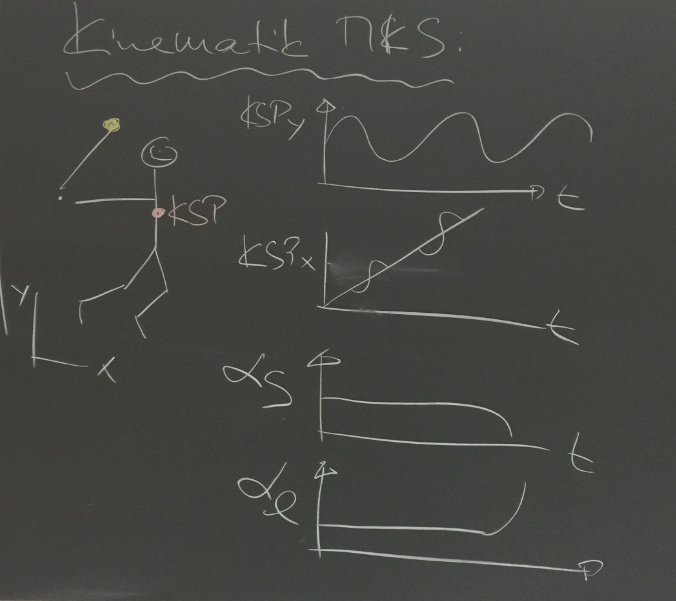 Kinematik MKS:
KSPy
t
KSP
KSPx
t
y
x
αS
t
αe